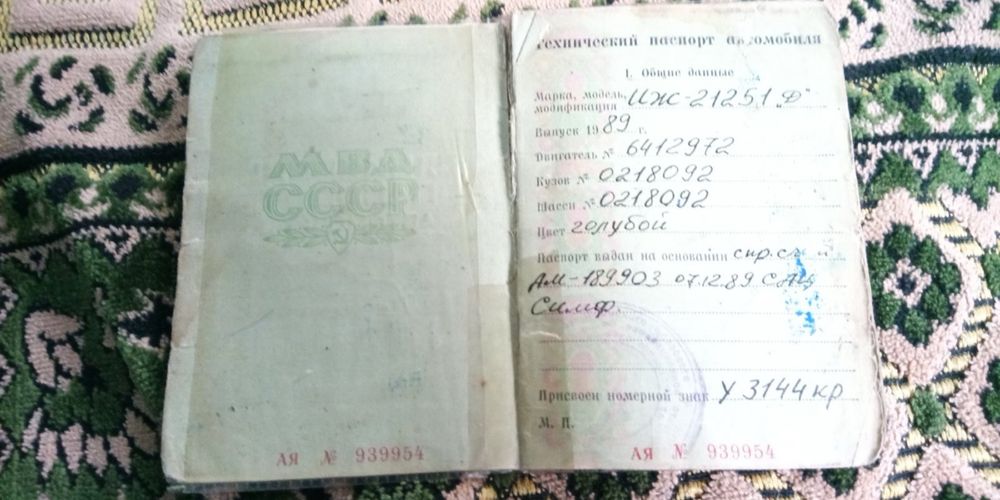 МВД
СССР
АЯ № 939954
Технический паспорт автомобиля
I. Общие данные
Марка, модель,
модификация ИЖ-21251 „Ф"
Выпуск 1989 г.
Двигатель № 6412972
Кузов № 0218092
Шасси № 0218092
Цвет голубой
Паспорт выдан на основании спр. сч
АМ-189903 07.12.89 САЦ
Симф.
Присвоен номерной знак У 3144 кр
М. П.
АЯ № 939954